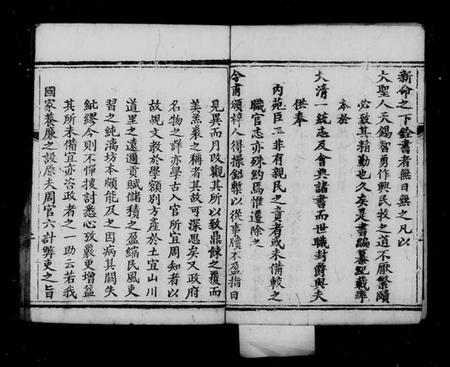 新命之下銓書者無日無之凡以
大聖人天錫智勇作興民牧之道不厭繁賾
必致其精勤也久矣是書編纂紀載率
本於
大清一統志及會典諸書而世職封爵與夫
供奉
內苑臣工非有親民之責者或未備較之
職官志亦殊約焉惟遷除之
令甫頒梓人得操鉛槧以從事牘不盈指日
見異而月改觀其所以致鼎餗之覆而
美黑裘之稱者其故可深思矣又政府
名物之詳亦學古入官所宜周知者以
故覘文教於學額別方產於土宜山川
道里之遠邇貢賦儲積之盈縮民風吏
習之純漓坊本頗能及之因病其闕失
紕繆今則不憚搜討悉心攷覈更增益
其所未備宜亦咨政者之一助云若我
國家養廉之設原夫周官六計弊吏之旨